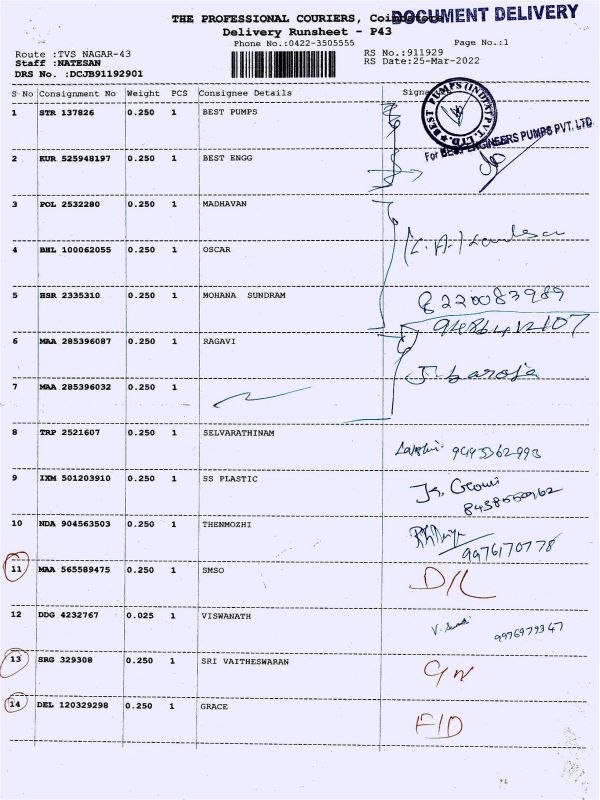 THE PROFESSIONAL COURIERS, Coimbatore
DOCUMENT DELIVERY
Delivery Runsheet - P43
Phone No.:0422-3505555 Page No.:1
Route :TVS NAGAR-43 RS No.:911929
Staff :NATESAN RS Date:25-Mar-2022
DRS No. :DCJB91192901
S No Consignment No Weight PCS Consignee Details
BEST PUMPS (INDIA) PVT. LTD.
1 STR 137826 0.250 1 BEST PUMPS
For BEST ENGINEERS PUMPS PVT. LTD
2 KUR 525948197 0.250 1 BEST ENGG
3 POL 2532280 0.250 1 MADHAVAN
4 BHL 100062055 0.250 1 OSCAR
5 HSR 2335310 0.250 1 MOHANA SUNDRAM 8220083989
6 MAA 285396087 0.250 1 RAGAVI
7 MAA 285396032 0.250 1
8 TRP 2521607 0.250 1 SELVARATHINAM
9 IXM 501203910 0.250 1 SS PLASTIC
10 NDA 904563503 0.250 1 THENMOZHI 9976170778
11 MAA 565589475 0.250 1 SMSO D/L
12 DDG 4232767 0.025 1 VISWANATH 9976979347
13 SRG 329308 0.250 1 SRI VAITHESWARAN
14 DEL 120329298 0.250 1 GRACE